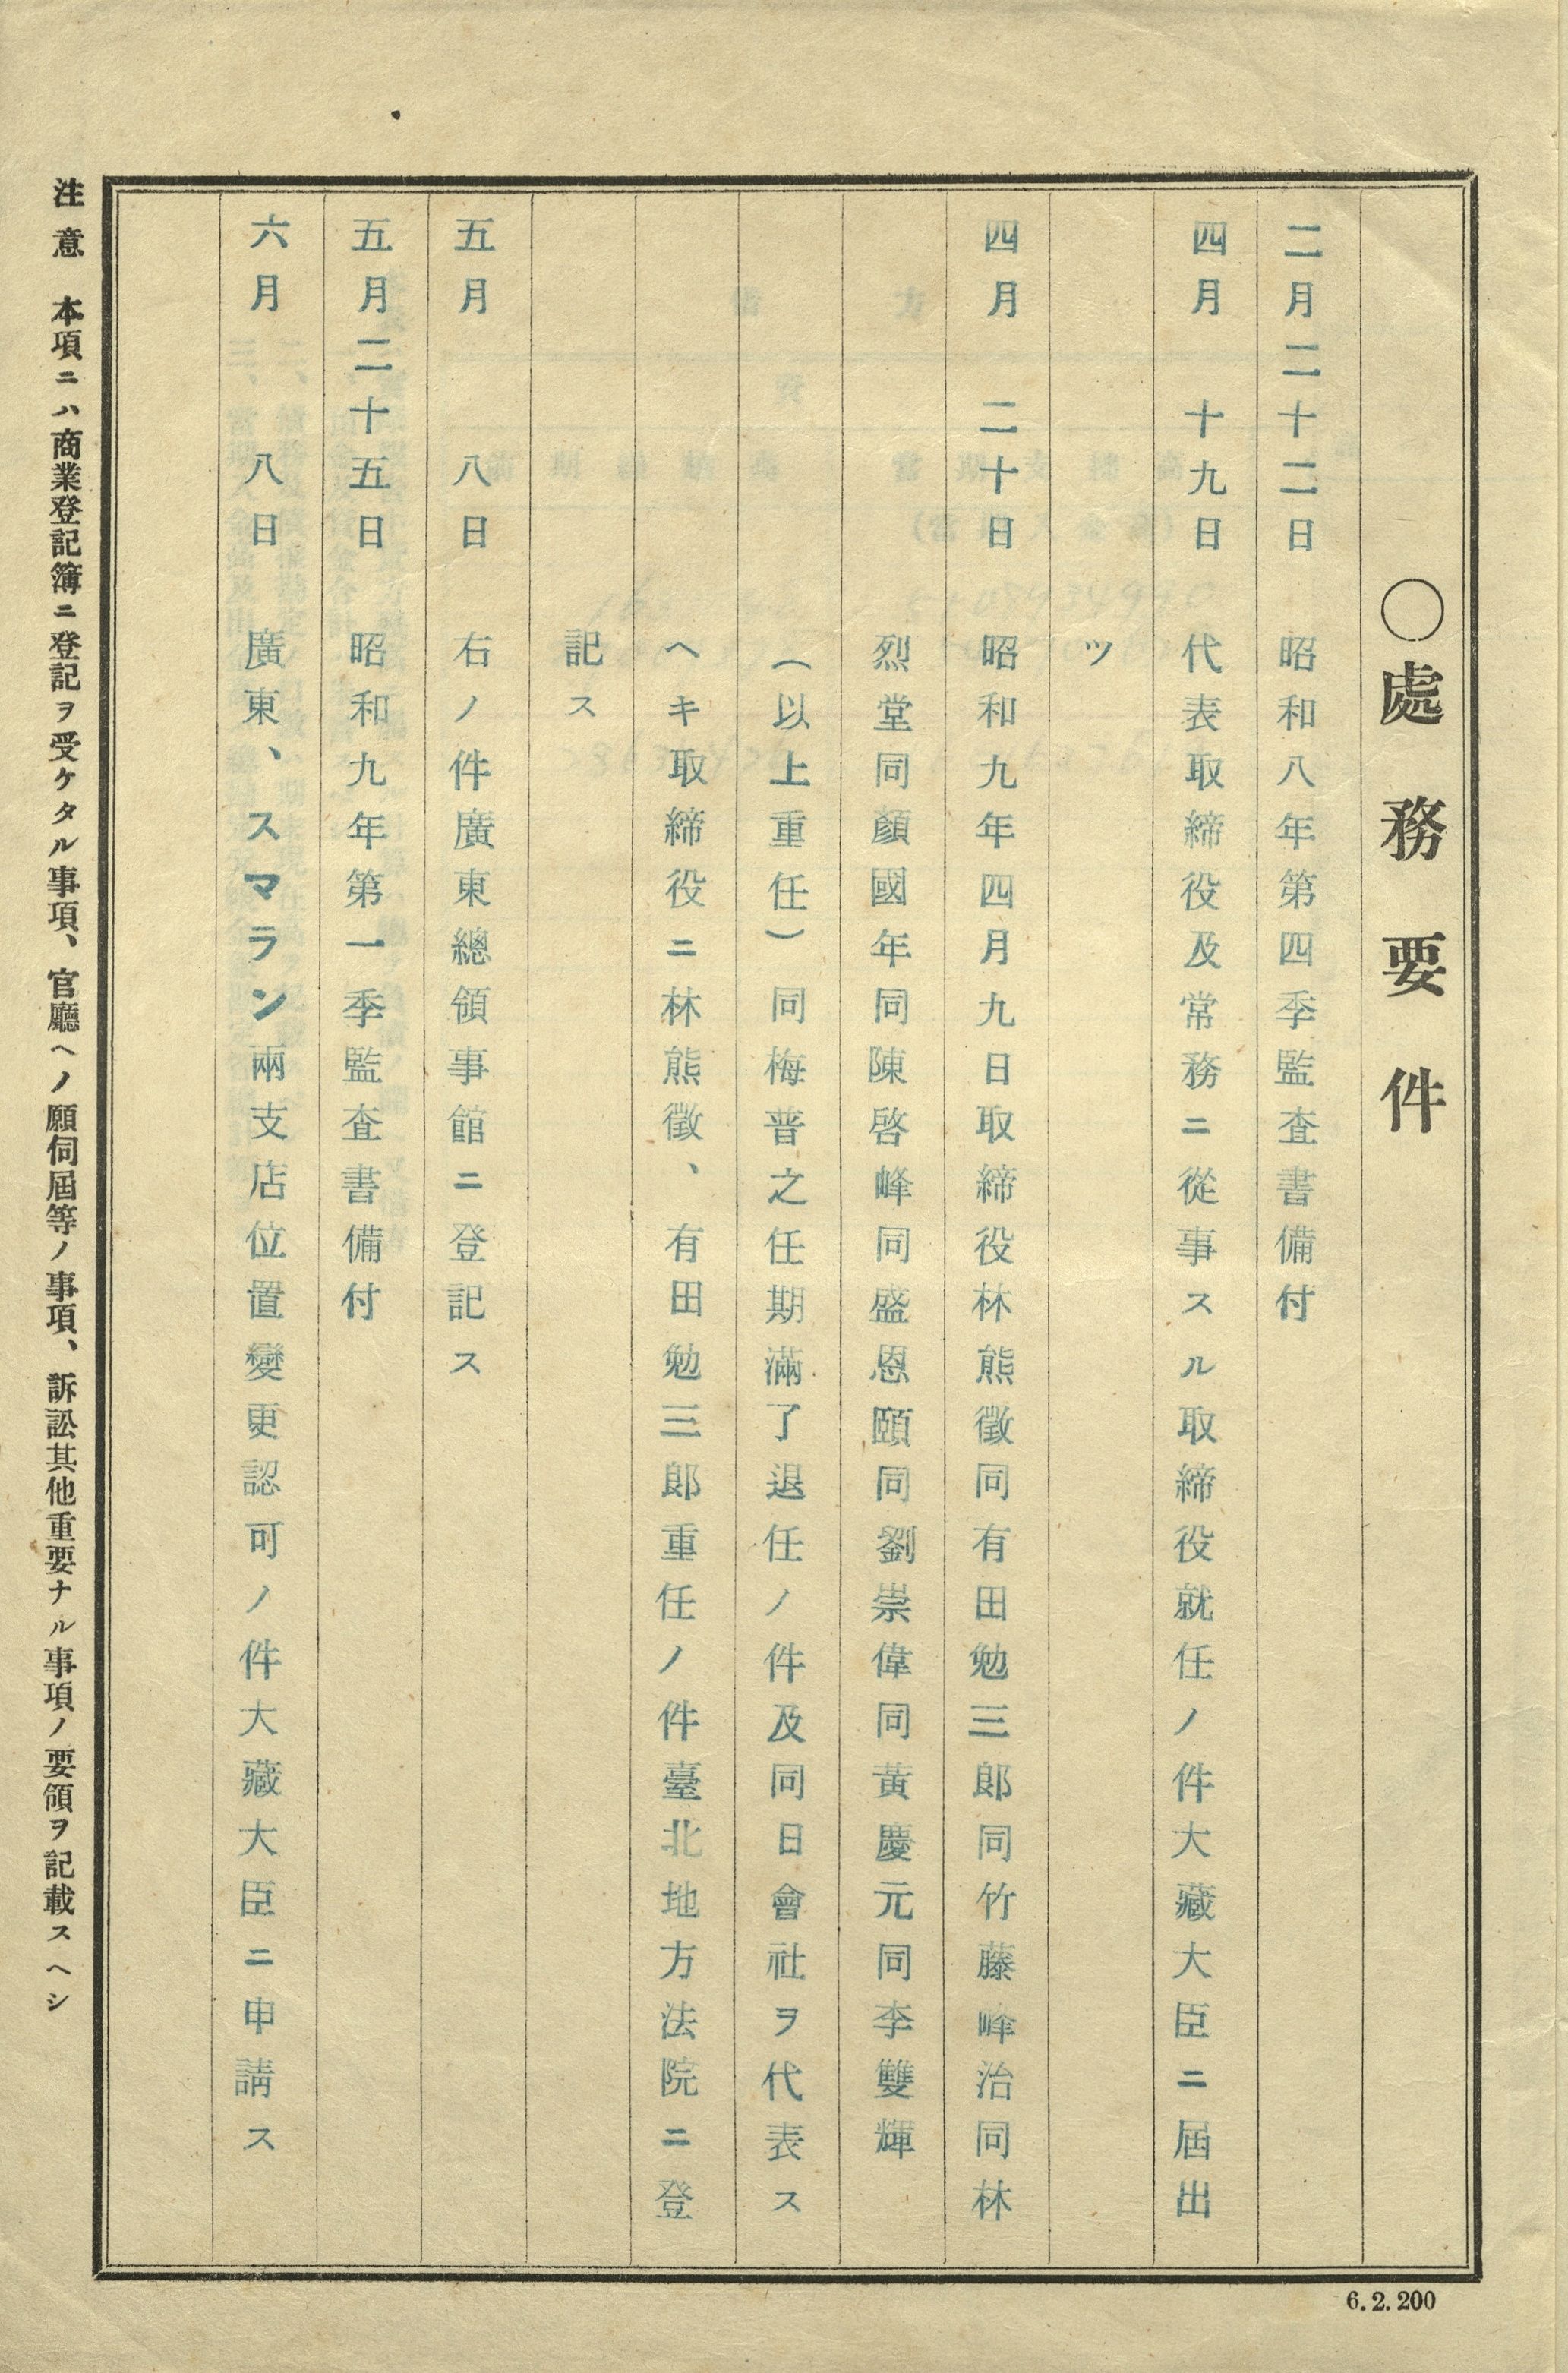 〇處務要件
二月二十二日 昭和八年第四季監査書備付
四月 十九日 代表取締役及常務ニ從事スル取締役就任ノ件大藏大臣ニ屆出
ツ
四月 二十日 昭和九年四月九日取締役林熊徵同有田勉三郎同竹藤峰治同林
烈堂同顏國年同陳啓峰同盛恩頤同劉崇偉同黃慶元同李雙輝
(以上重任)同梅普之任期滿了退任ノ件及同日會社ヲ代表ス
ヘキ取締役ニ林熊徵、有田勉三郎重任ノ件臺北地方法院ニ登
記ス
五月 八日 右ノ件廣東總領事館ニ登記ス
五月二十五日 昭和九年第一季監査書備付
六月 八日 廣東、スマラン兩支店位置變更認可ノ件大藏大臣ニ申請ス
注意 本項ニハ商業登記簿ニ登記ヲ受ケタル事項、官廳ヘノ願伺屆等ノ事項、訴訟其他重要ナル事項ノ要領ヲ記載スヘシ
6.2.200